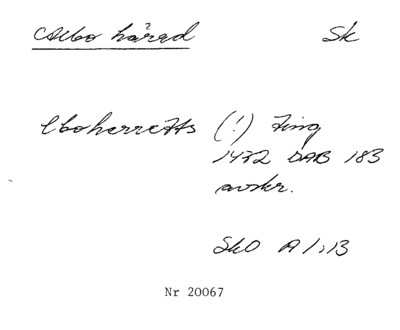 Albo härad Sk
Eboharretts (!) Ting
1472 DAB 183
avskr.
SkO A 1:13
Nr 20067